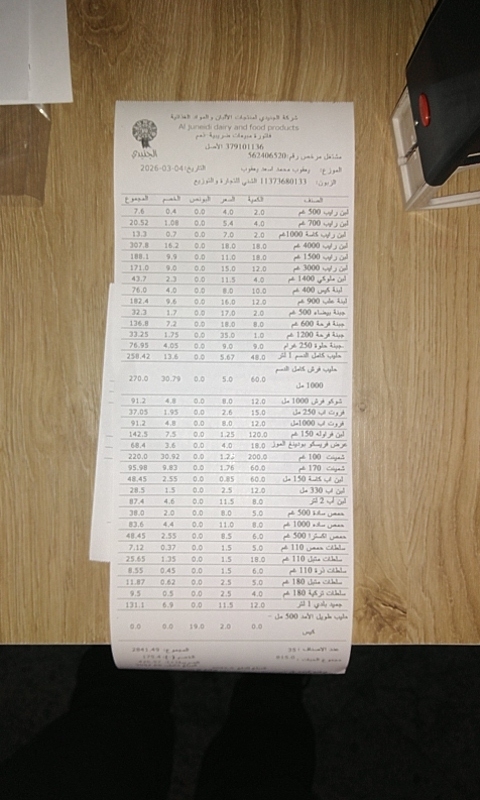 شركة الجنيدي لمنتجات الألبان والمواد الغذائية
Al Juneidi dairy and food products
فاتورة مبيعات ضريبية-نعم
379101136 الأصل
مشتغل مرخص رقم:562406520
الموزع: يعقوب محمد اسعد يعقوب التاريخ:2026-03-04
الزبون: 11373680133 للتجارة والتوزيع
الجنيدي
الصنف الكمية السعر البونص الخصم المجموع
لبن رايب 500 غم 2.0 4.0 0.0 0.4 7.6
لبن رايب 700 غم 4.0 5.4 0.0 1.08 20.52
لبن رايب كاسة 1000غم 2.0 7.0 0.0 0.7 13.3
لبن رايب 4000 غم 18.0 18.0 0.0 16.2 307.8
لبن رايب 1500 غم 18.0 11.0 0.0 9.9 188.1
لبن رايب 3000 غم 12.0 15.0 0.0 9.0 171.0
لبن ملوكي 1400 غم 4.0 11.5 0.0 2.3 43.7
لبنة كيس 400 غم 10.0 8.0 0.0 4.0 76.0
لبنة علب 900 غم 12.0 16.0 0.0 9.6 182.4
جبنة بيضاء 500 غم 2.0 17.0 0.0 1.7 32.3
جبنة فرحة 600 غم 8.0 18.0 0.0 7.2 136.8
جبنة فرحة 1200 غم 1.0 35.0 0.0 1.75 33.25
جبنة حلوة 250 غرام 9.0 9.0 0.0 4.05 76.95
حليب كامل الدسم 1 لتر 48.0 5.67 0.0 13.6 258.42
حليب فرش كامل الدسم
1000 مل 60.0 5.0 0.0 30.79 270.0
شوكو فرش 1000 مل 12.0 8.0 0.0 4.8 91.2
فروت اب 250 مل 15.0 2.6 0.0 1.95 37.05
فروت اب 1000مل 12.0 8.0 0.0 4.8 91.2
لبن فراوله 150 غم 120.0 1.25 0.0 7.5 142.5
عرض فريسكو بودينغ الموز 18.0 4.0 0.0 3.6 68.4
شمينت 100 غم 200.0 0.0 30.92 220.0
شمينت 170 غم 60.0 1.76 0.0 9.83 95.98
لبن اب كاسة 150 مل 60.0 0.85 0.0 2.55 48.45
لبن اب 330 مل 12.0 2.5 0.0 1.5 28.5
لبن اب 2 لتر 8.0 11.5 0.0 4.6 87.4
حمص سادة 500 غم 5.0 8.0 0.0 2.0 38.0
حمص سادة 1000 غم 8.0 11.0 0.0 4.4 83.6
حمص اكسترا 500 غم 6.0 8.5 0.0 2.55 48.45
سلطات حمص 110 غم 5.0 1.5 0.0 0.37 7.12
سلطات متبل 110 غم 18.0 1.5 0.0 1.35 25.65
سلطات ذرة 110 غم 6.0 1.5 0.0 0.45 8.55
سلطات متبل 180 غم 5.0 2.5 0.0 0.62 11.87
سلطات تركية 180 غم 4.0 2.5 0.0 0.5 9.5
جميد بلدي 1 لتر 12.0 11.5 0.0 6.9 131.1
حليب طويل الأمد 500 مل -
كيس 0.0 2.0 19.0 0.0 0.0
عدد الاصناف : المجموع :